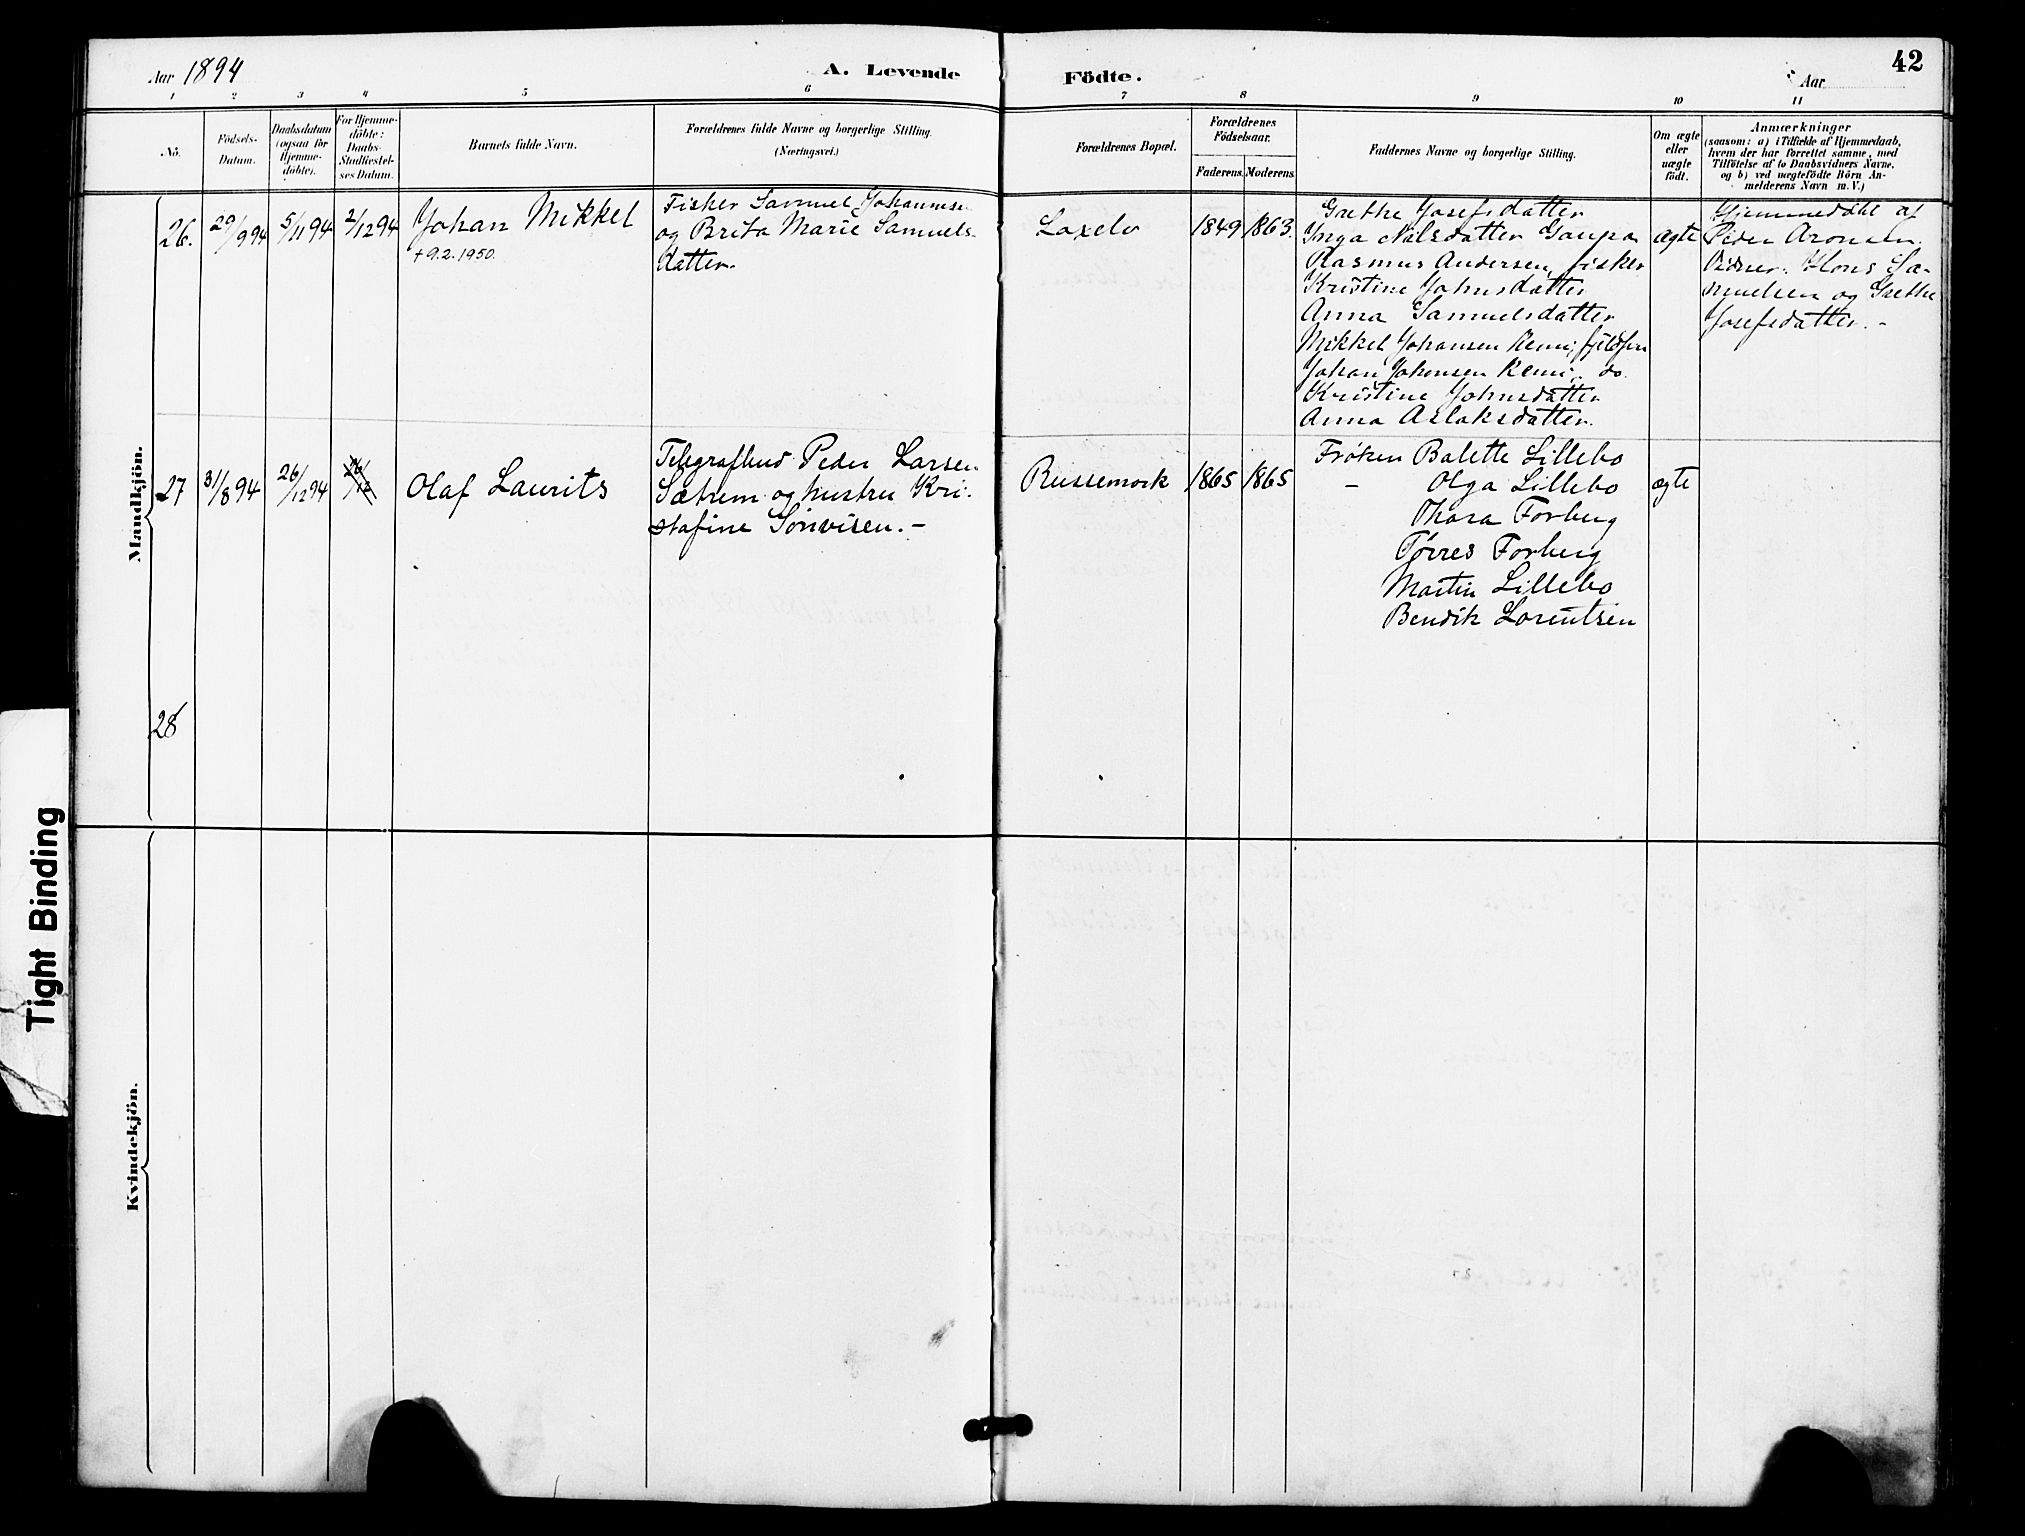 Aar 1894
A. Levende
Födte.
Aar
42
1 2 3 4 5 6 7 8 9 10 11
No.
Födsels-
Datum.
Daabsdatum
(ogsaa for
Hjemme-
döbte).
For Hjemme-
döbte:
Daabs-
Stadfæstel-
ses Datum.
Barnets fulde Navn.
Forældrenes fulde Navne og borgerlige Stilling.
(Næringsvei.)
Forældrenes Bopæl.
Forældrenes
Födselsaar.
Faderens. Moderens.
Faddernes Navne og borgerlige Stilling.
Om ægte
eller
uægte
födt.
Anmærkninger
(saasom: a) i Tilfælde af Hjemmedaab,
hvem der har forrettet samme, med
Tilföielse af to Daabsvidners Navne,
og b) ved uægtefödte Börn An-
melderens Navn m. V.)
Mandkjön.
26. 29/9 94 5/11 94 2/12 94
Johan Mikkel
+ 9.2.1950.
Fisker Samuel Johannesen
og Brita Marie Samuels-
datter.
Laxelv
1849 1863.
Grethe Josefsdatter
Inga Nilsdatter Gaupa
Rasmus Andersen, fisker
Kristine Johnsdatter
Anna Samuelsdatter
Mikkel Johansen Kemi,
Johan Johansen Kemi, do.
Kristine Johnsdatter
Anna Aslaksdatter.
ægte
Hjemmedøbt af
Peder Aronsen.
Vidner: Hans Sa-
muelsen og Grethe
Josefsdatter. -
27 31/8 94 26/12 94 26/12
Olaf Laurits
Telegrafbud Peder Larsen
Sætrem og hustru Kri-
stafine Sönvisen. -
Russemark
1865 1865
Frøken Balette Lillebo
- Olga Lillebo
Thora Forberg
Tørres Forberg
Martin Lillebo
Bendik Lorentsen
ægte
28
Kvindekjön.
Tight Binding